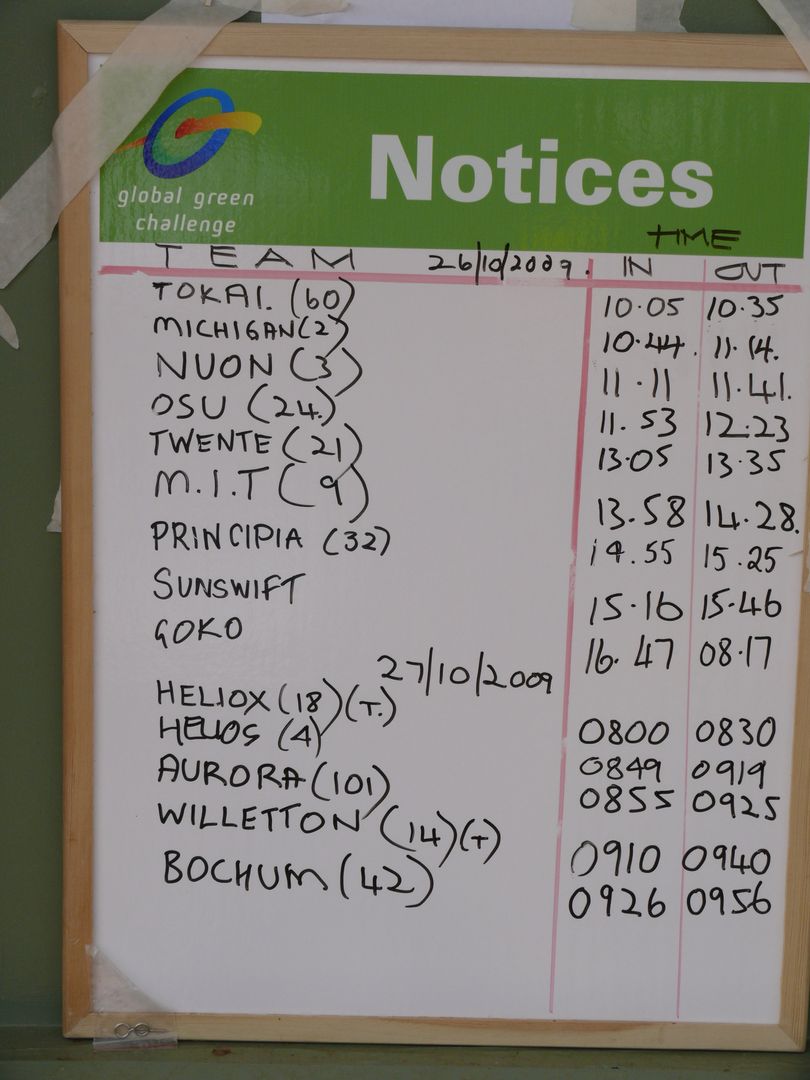 global green
challenge
Notices
TIME
TEAM 26/10/2009. IN OUT
TOKAI. (60) 10.05 10.35
MICHIGAN (2) 10.44. 11.14.
NUON (3) 11.11 11.41.
OSU (24.) 11.53 12.23
TWENTE (21) 13.05 13.35
M.I.T (9) 13.58 14.28.
PRINCIPIA (32) 14.55 15.25
SUNSWIFT 15.16 15.46
GOKO 16.47 08.17
27/10/2009
HELIOX (18) (T.) 0800 0830
HELIOS (4) 0849 0919
AURORA (101) 0855 0925
WILLETTON (14) (T) 0910 0940
BOCHUM (42) 0926 0956